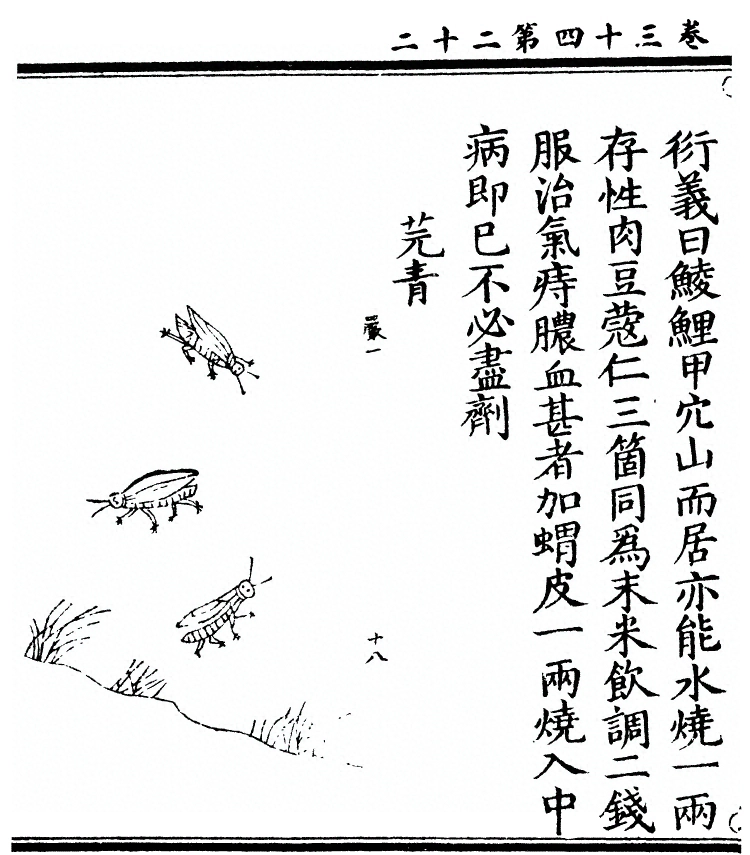 卷三十四第二十二
衍義曰鯪鯉甲穴山而居亦能水燒一兩
存性肉豆蔻仁三箇同爲末米飲調二錢
服治氣痔膿血甚者加蝟皮一兩燒入中
病即已不必盡劑
芫青
十八